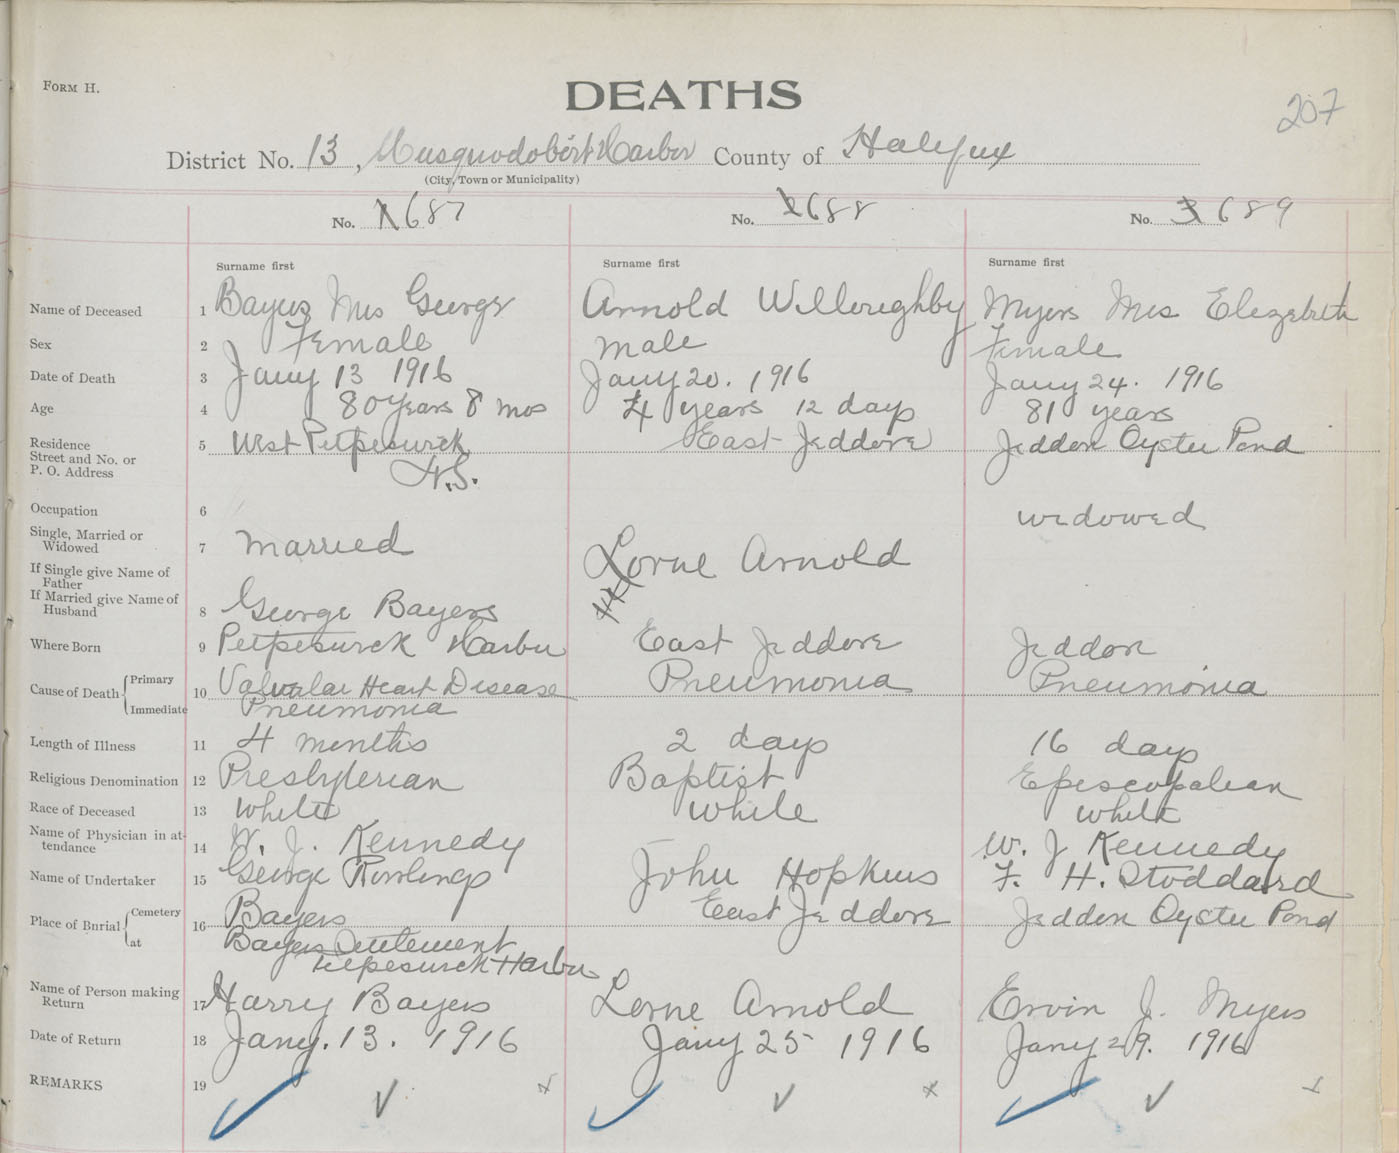 FORM H.
DEATHS
207
District No. 13, Musquodoboit Harbor County of Halifax
(City, Town or Municipality)
No. 1 687 No. 2 688 No. 3 689
Surname first Surname first Surname first
Name of Deceased 1 Bayers Mrs George Arnold Willoughby Myers Mrs Elezabeth
Sex 2 Female Male Female
Date of Death 3 Jany 13 1916 Jany 20. 1916 Jany 24. 1916
Age 4 80 years 8 mos 4 years 12 days 81 years
Residence 5 West Petpeswick East Jeddore Jeddore Oyster Pond
Street and No. or
P. O. Address N.S.
Occupation 6 widowed
Single, Married or
Widowed 7 Married
If Single give Name of
Father Lorne Arnold
If Married give Name of
Husband 8 George Bayers
Where Born 9 Petpeswick Harbor East Jeddore Jeddore
Cause of Death Primary 10 Valvular Heart Disease Pneumonia Pneumonia
Immediate Pneumonia
Length of Illness 11 4 months 2 days 16 days
Religious Denomination 12 Presbyterian Baptist Episcopalean
Race of Deceased 13 White White White
Name of Physician in at-
tendance 14 W. J. Kennedy W. J Kennedy
Name of Undertaker 15 George Rowlings John Hopkins F. H. Stoddard
Place of Burial Cemetery 16 Bayers East Jeddore Jeddore Oyster Pond
at Bayers
Petpeswick Harbor
Name of Person making
Return 17 Harry Bayers Lorne Arnold Ervin J. Myers
Date of Return 18 Jany. 13. 1916 Jany 25 1916 Jany 29. 1916
REMARKS 19